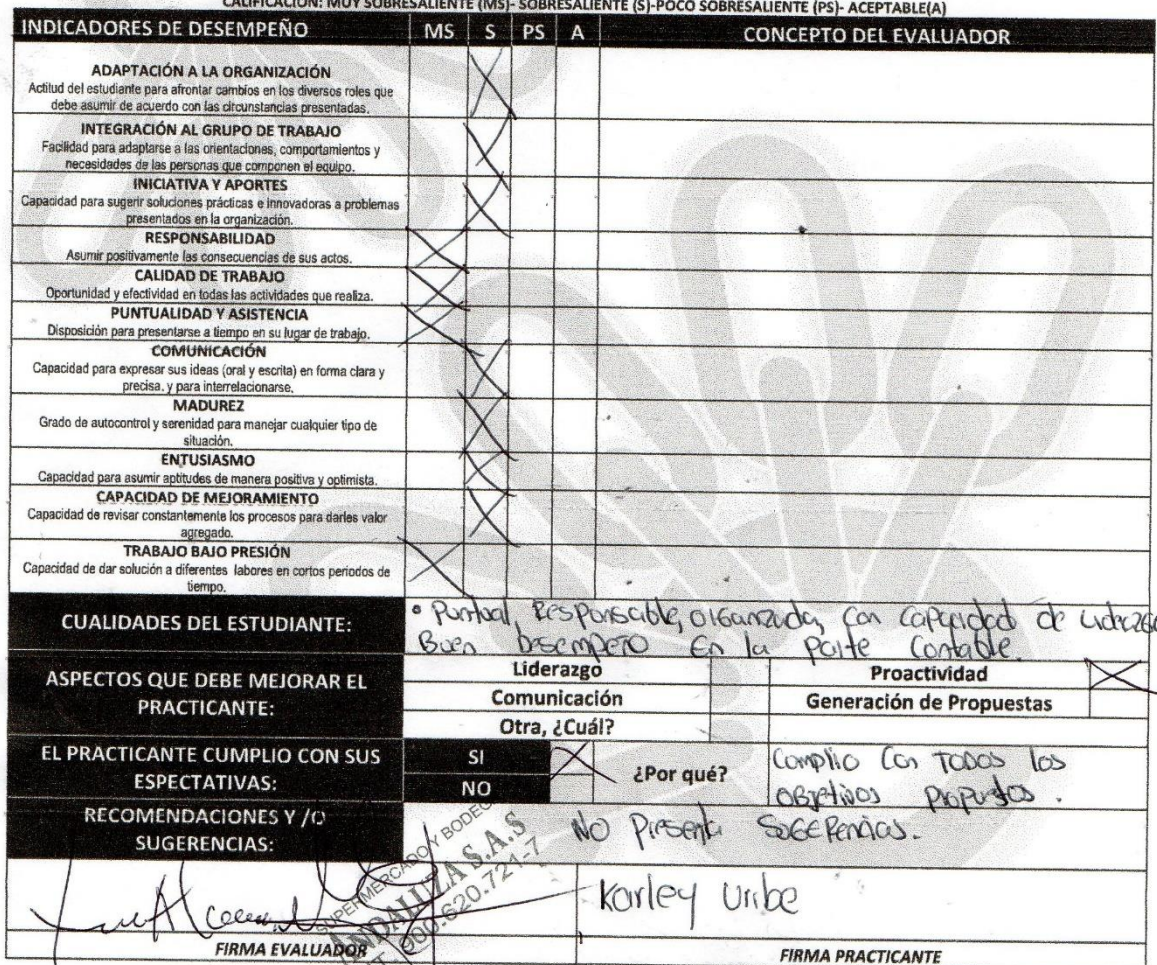 CALIFICACIÓN: MUY SOBRESALIENTE (MS)- SOBRESALIENTE (S)-POCO SOBRESALIENTE (PS)- ACEPTABLE(A)
INDICADORES DE DESEMPEÑO MS S PS A CONCEPTO DEL EVALUADOR
ADAPTACIÓN A LA ORGANIZACIÓN
Actitud del estudiante para afrontar cambios en los diversos roles que
debe asumir de acuerdo con las circunstancias presentadas.
INTEGRACIÓN AL GRUPO DE TRABAJO
Facilidad para adaptarse a las orientaciones, comportamientos y
necesidades de las personas que componen el equipo.
INICIATIVA Y APORTES
Capacidad para sugerir soluciones prácticas e innovadoras a problemas
presentados en la organización.
RESPONSABILIDAD
Asumir positivamente las consecuencias de sus actos.
CALIDAD DE TRABAJO
Oportunidad y efectividad en todas las actividades que realiza.
PUNTUALIDAD Y ASISTENCIA
Disposición para presentarse a tiempo en su lugar de trabajo.
COMUNICACIÓN
Capacidad para expresar sus ideas (oral y escrita) en forma clara y
precisa. y para interrelacionarse.
MADUREZ
Grado de autocontrol y serenidad para manejar cualquier tipo de
situación.
ENTUSIASMO
Capacidad para asumir aptitudes de manera positiva y optimista.
CAPACIDAD DE MEJORAMIENTO
Capacidad de revisar constantemente los procesos para darles valor
agregado.
TRABAJO BAJO PRESIÓN
Capacidad de dar solución a diferentes labores en cortos periodos de
tiempo.
CUALIDADES DEL ESTUDIANTE:
• Puntual, Responsable, organizada, con capacidad de Liderazgo
Buen Desempeño En la Parte Contable.
ASPECTOS QUE DEBE MEJORAR EL
PRACTICANTE:
Liderazgo Proactividad
Comunicación Generación de Propuestas
Otra, ¿Cuál?
EL PRACTICANTE CUMPLIO CON SUS
ESPECTATIVAS:
SI
NO
¿Por qué?
Complio Con TODOS los
OBjetivos Propuestos.
RECOMENDACIONES Y /O
SUGERENCIAS:
NO Presenta SUGERencias.
SUPERMERCADO Y BODEGA
ANDALUZA S.A.S
NIT. 900.620.721-7
Karley Uribe
FIRMA EVALUADOR FIRMA PRACTICANTE